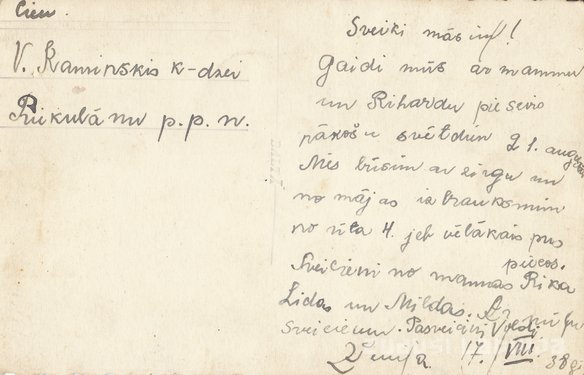 Cien.
V. Kaminskis k-dzei
Priekulānu p.p. n.
Sveiki māsiņ!
Gaidi mūs ar mammu
un Rihardu pie sevis
nākošu svētdien 21. augustā
Mēs būsim ar zirgu un
no mājas izbrauksmim
no rīta 4. jeb vēlākais pus
piecos.
Sveicieni no mammas Rika
Lidas un Mildas. Ar
sveicienu. Pasveicini Voldi
17. VIII 38g.